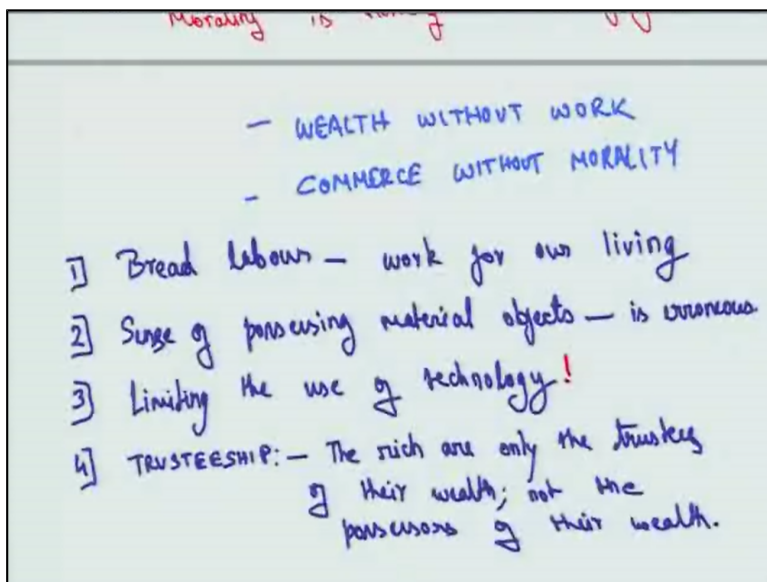 Morality is
- WEALTH WITHOUT WORK
- COMMERCE WITHOUT MORALITY
1] Bread labour - work for our living
2] Sense of possessing material objects - is erroneous.
3] Limiting the use of technology!
4] TRUSTEESHIP:- The rich are only the trustees
of their wealth; not the
possessors of their wealth.